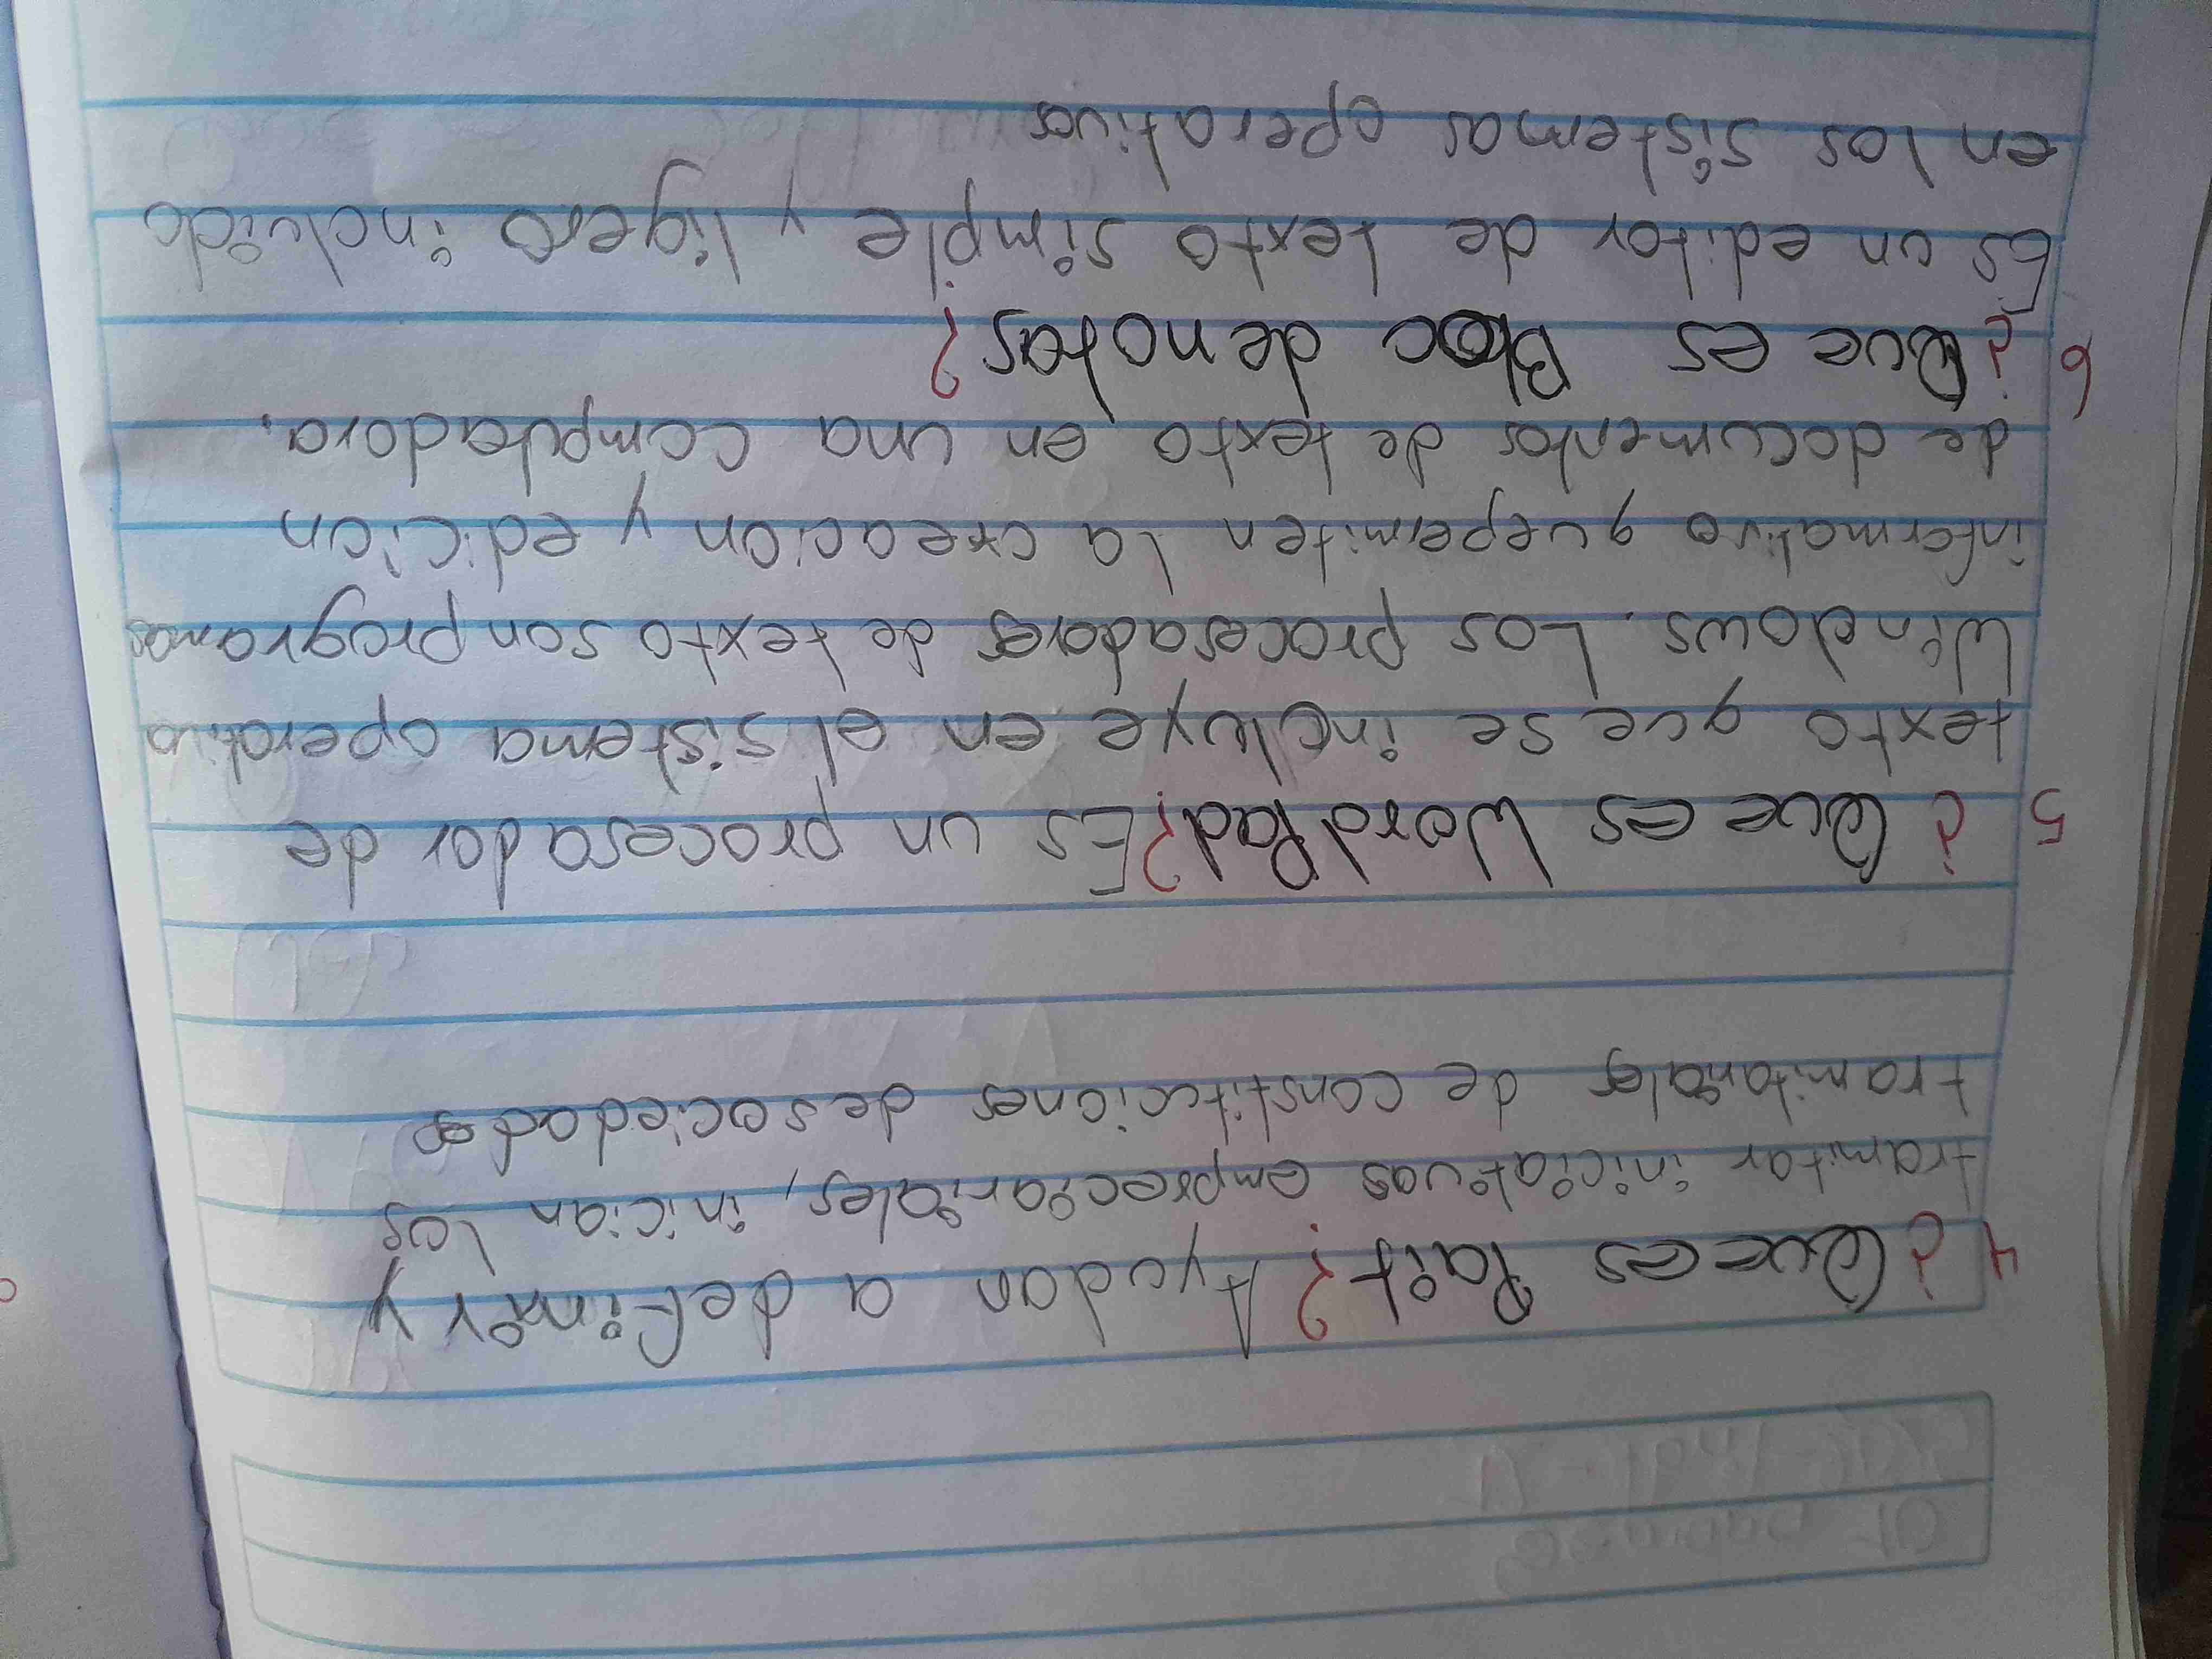 4 ¿Que es Pait? Ayudan a definir y
tramitar iniciativas empreciariales, inician los
tramitariales de constituciones de sociedades
5 ¿Que es WordPad? Es un procesador de
texto que se incluye en el sistema operativo
Windows. Los procesadores de texto son programas
informativo que permiten la creación y edicion
de documentos de texto en una computadora.
6 ¿Que es Bloc de notas?
Es un editor de texto simple y ligero incluido
en los sistemas operativos